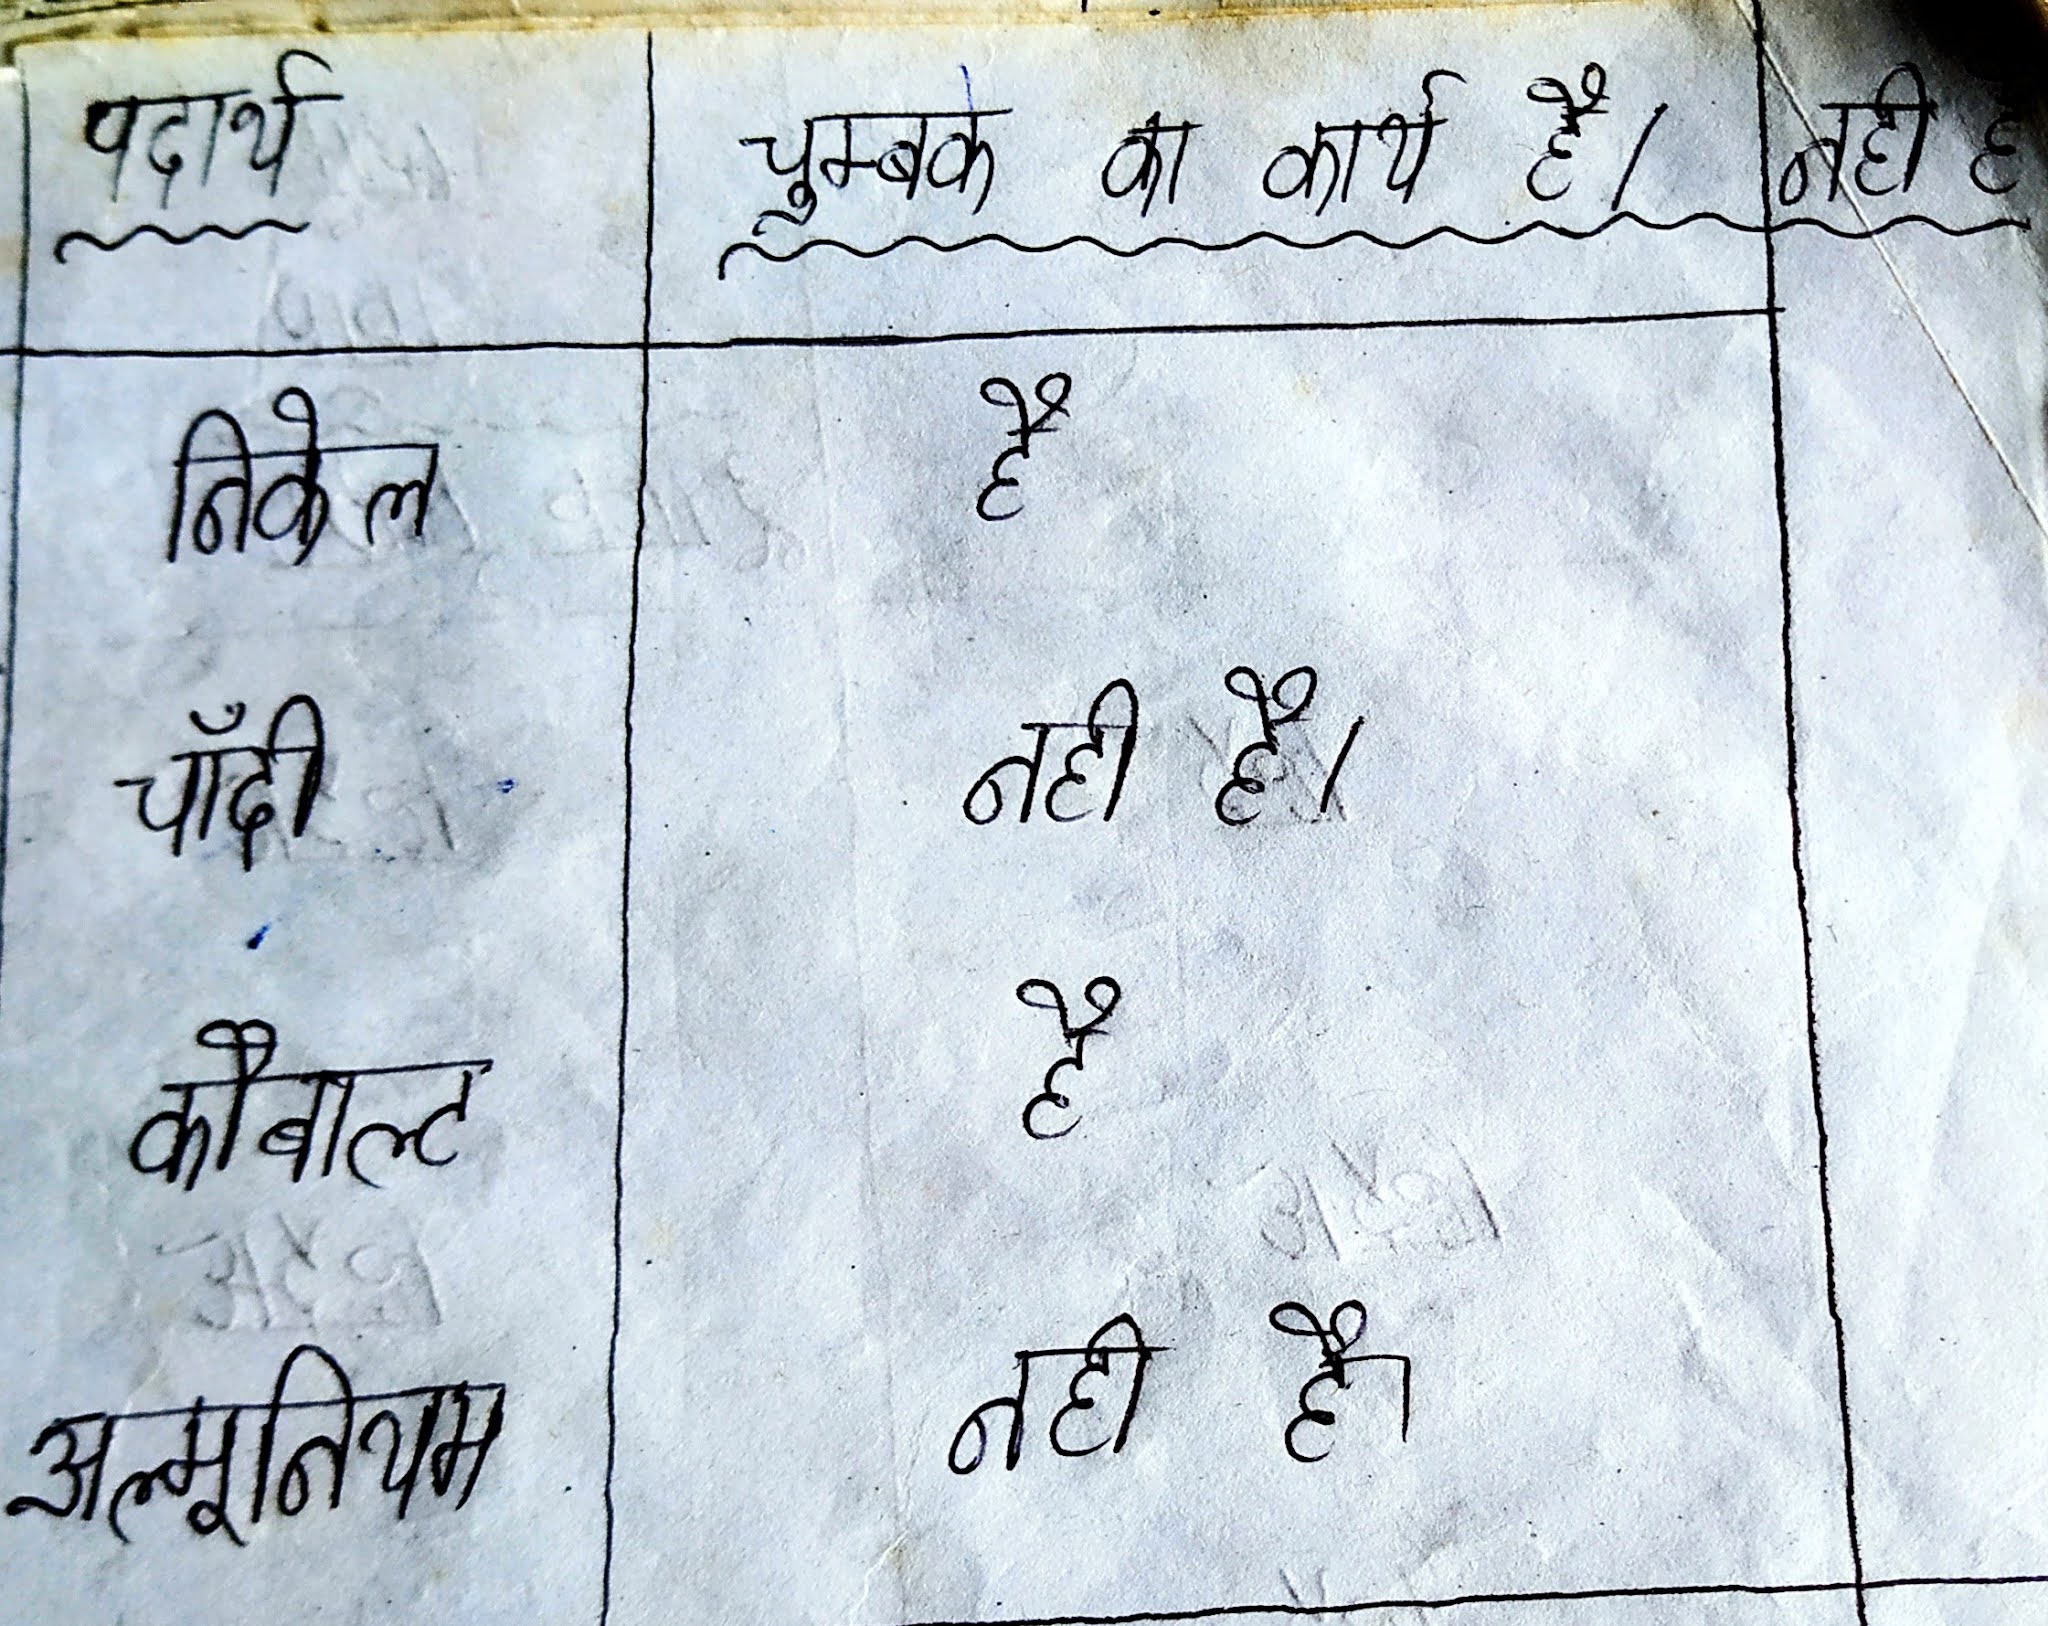 पदार्थ चुम्बक का कार्य है। नही है
निकेल है
चाँदी नही है।
कौबाल्ट है
अल्मूनियम नही है।